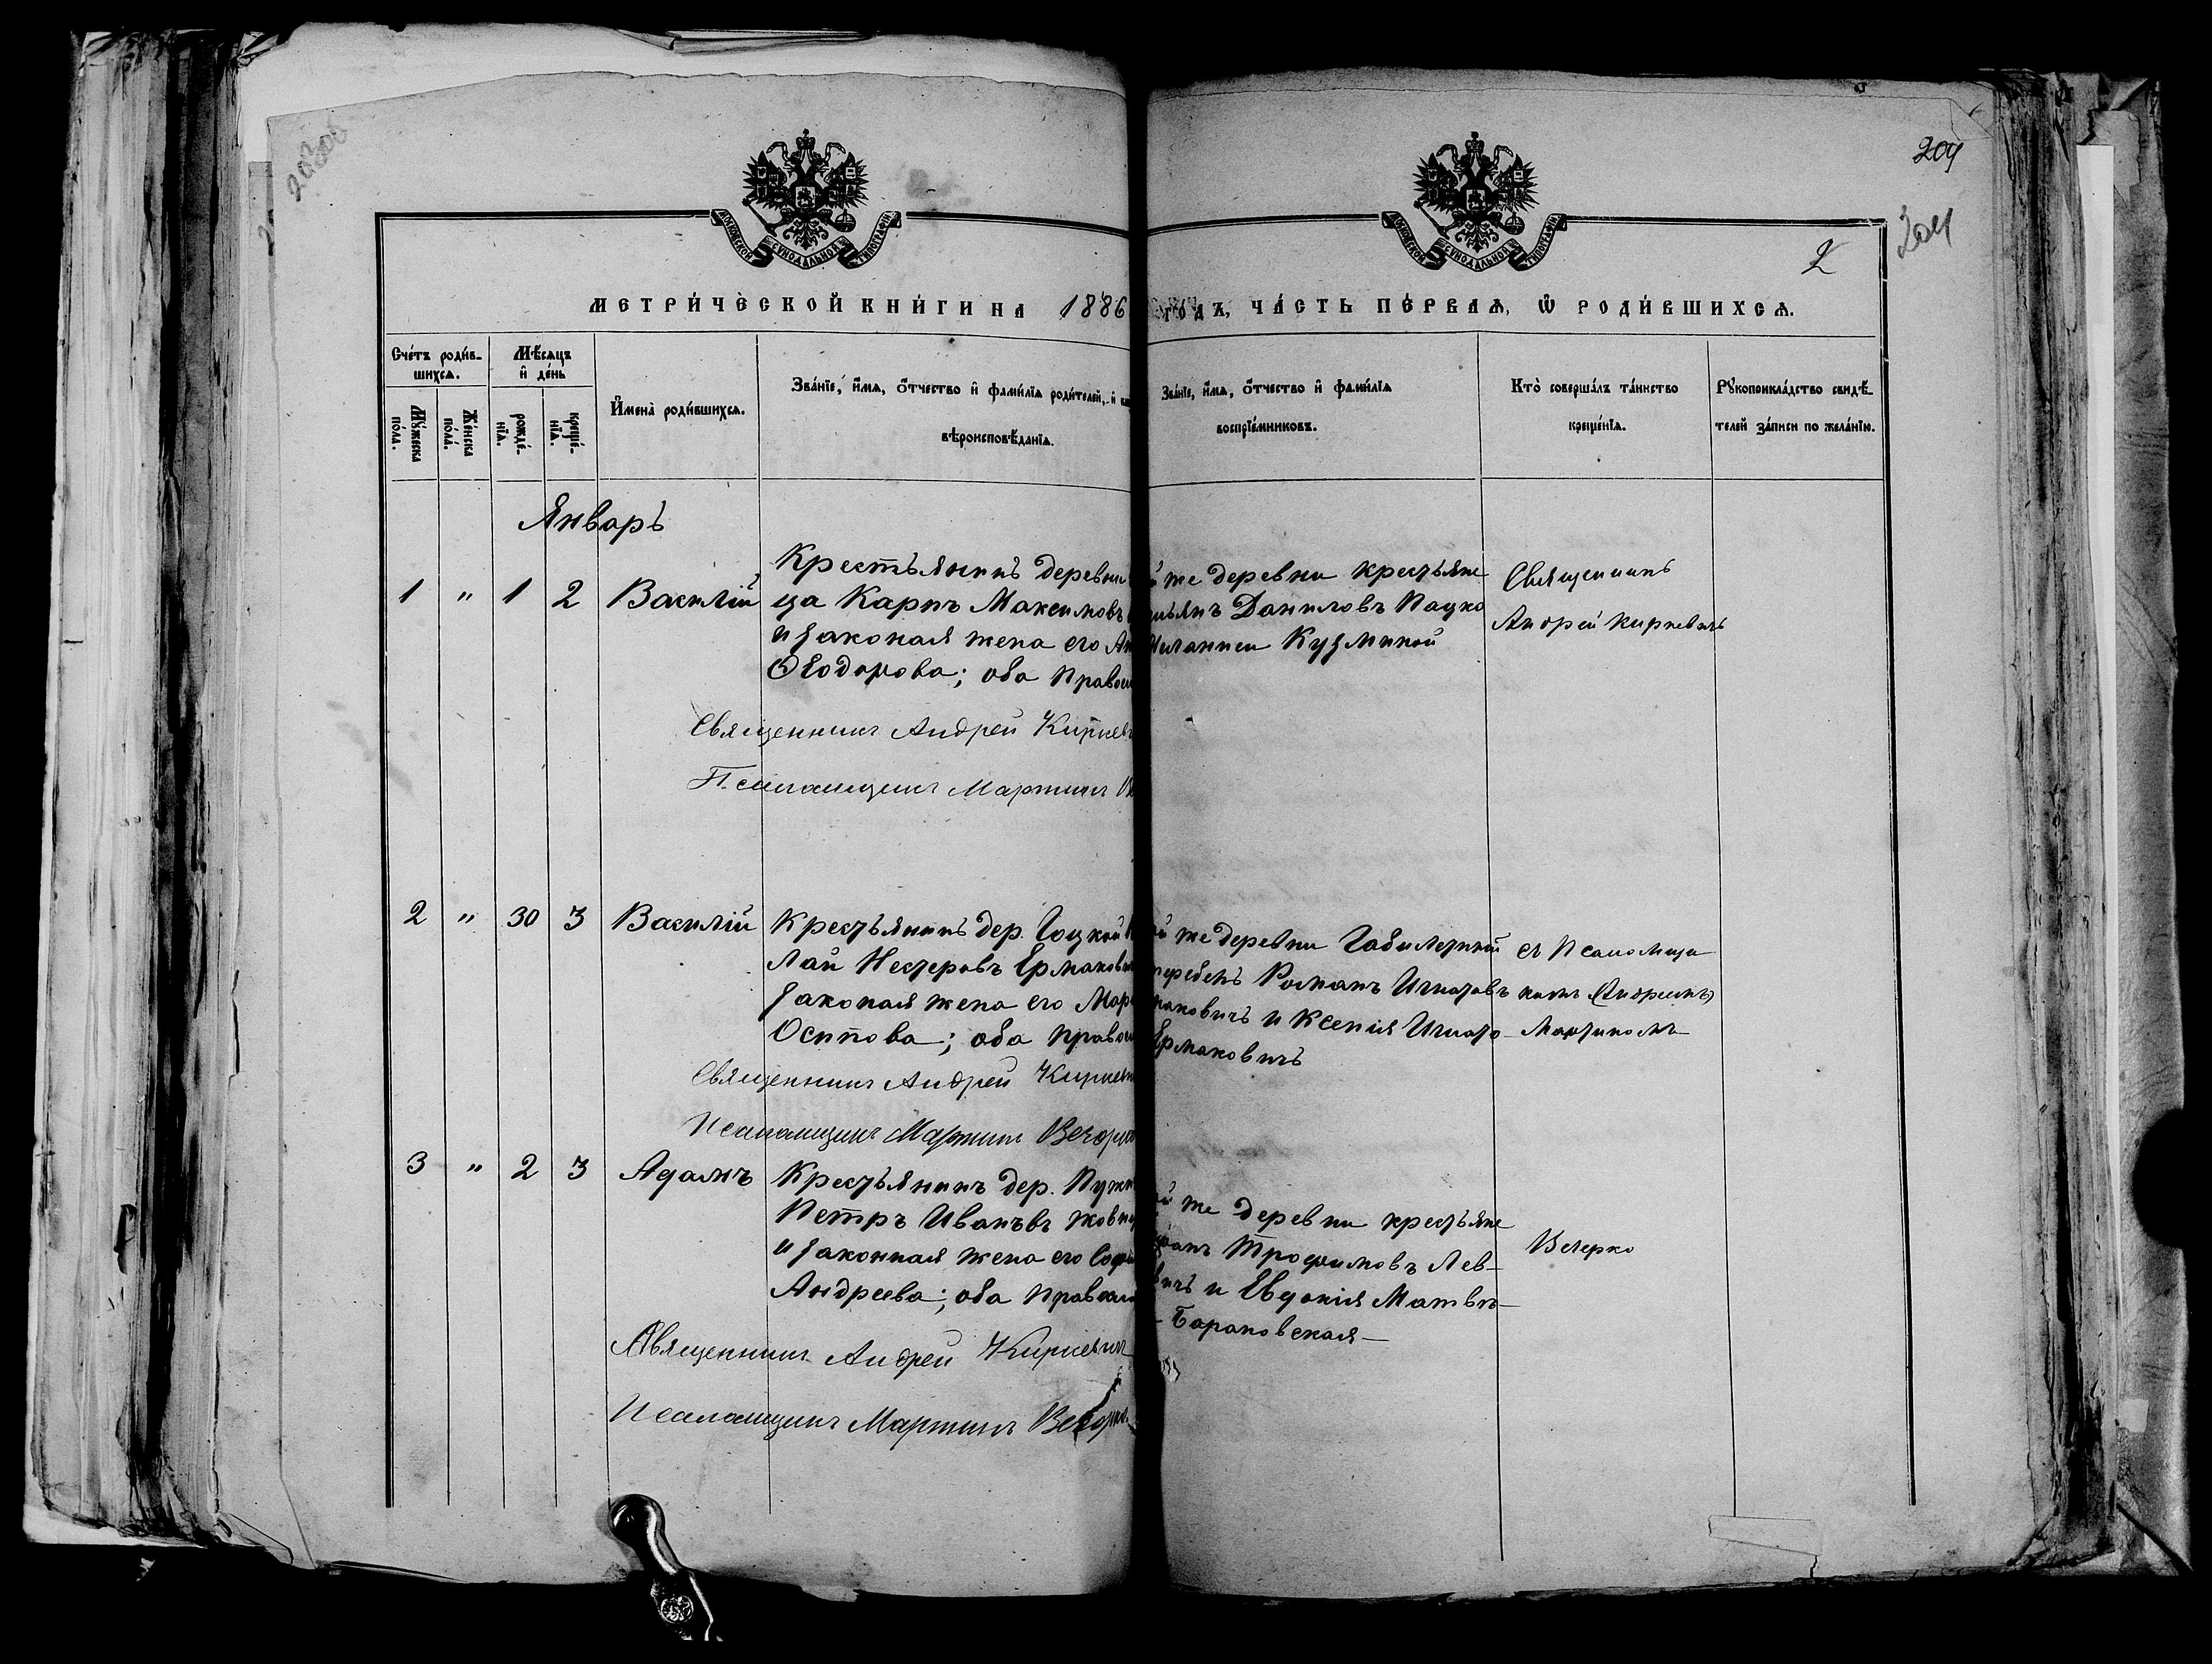 204
204
2
МОСКОВСКОЙ СѴНОДАЛЬНОЙ ТИПОГРАФІИ
МОСКОВСКОЙ СѴНОДАЛЬНОЙ ТИПОГРАФІИ
МЕТРИ́ЧЕСКОЙ КНИ́ГИ НА 1886 ГОДЪ, ЧА́СТЬ ПЕ́РВАѦ, Ѡ РОДИ́ВШИХСѦ.
Сче́тъ роди́в-
шихсѧ.
Мꙋ́жеска
по́ла.
Же́нска
по́ла.
Мѣ́сѧцъ
и҆ де́нь
рожде́-
нїѧ.
креще́-
нїѧ.
И҆мена̀ роди́вшихсѧ.
Зва́нїе, и҆́мѧ, ѻ҆́тчество и҆ фами́лїѧ роди́телей, и҆
вѣроисповѣ́данїѧ.
Зва́нїе, и҆́мѧ, ѻ҆́тчество и҆ фами́лїѧ
воспрїе́мниковъ.
Кто̀ соверша́лъ та́инство
креще́нїѧ.
Рꙋкоприкла́дство свидѣ́-
телей за́писи по жела́нїю.
Январь
1 " 1 2 Василій
Крестьянинъ деревни
ца Карпъ Максимовъ
и законая жена его
Ѳеодорова; оба правос
й же деревни крестьяне
Даниловъ Пацко
Кузминой
Священникъ
Андрей Киркевичъ
Священникъ Андрей Киркев
Псаломщикъ Мартинъ
2 " 30 3 Василій
Крестьянинъ дер. Гоцкой
лай Нестеровъ Ермакович
законая жена его Мар
Осипова; оба правос
й же деревни
Романъ Игнатовъ
раковичъ и Ксенія Игнато-
Ермаковичъ
съ Псаломщи
комъ
Мартиномъ
Священникъ Андрей Киркевич
Псаломщикъ Мартинъ Вечорко
3 " 2 3 Адамъ
Крестьянинъ дер.
Петръ Ивановъ
и законная жена его Софія
Андреева; оба правосл
й же деревни крестьяне
Трофимовъ Лев-
вичъ и Евдокія Матвѣ-
- Барановская -
Вечерко
Священникъ Андрей Киркевичъ
Псаломщикъ Мартинъ Вечорко